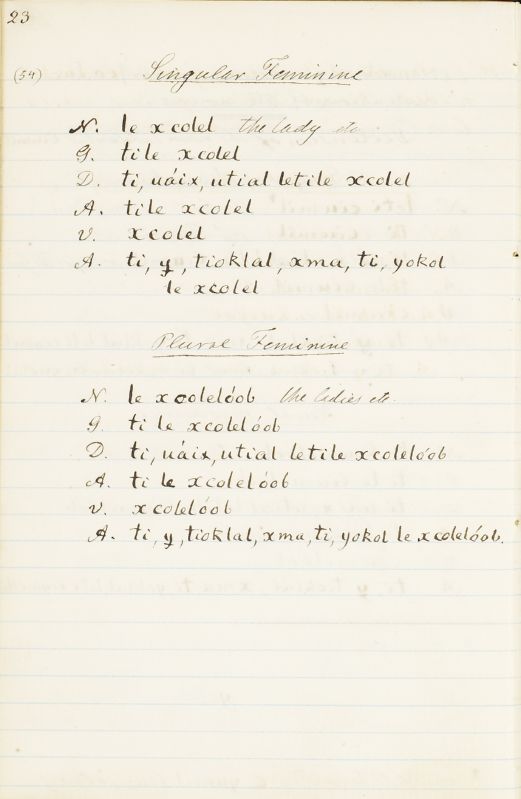 23
(54)
Singular Feminine
N. le xcolel the lady etc
G. ti le xcolel
D. ti, uáix, utial letile xcolel
A. tile xcolel
V. xcolel
A. ti, y, tioklal, xma, ti, yokol
le xcolel
Plural Feminine
N. le xcolelóob the ladies etc.
G. ti le xcolelóob
D. ti, uáix, utial letile xcolelóob
A. ti le xcolelóob
V. xcolelóob
A. ti, y, tioklal, xma, ti, yokol le xcolelóob.